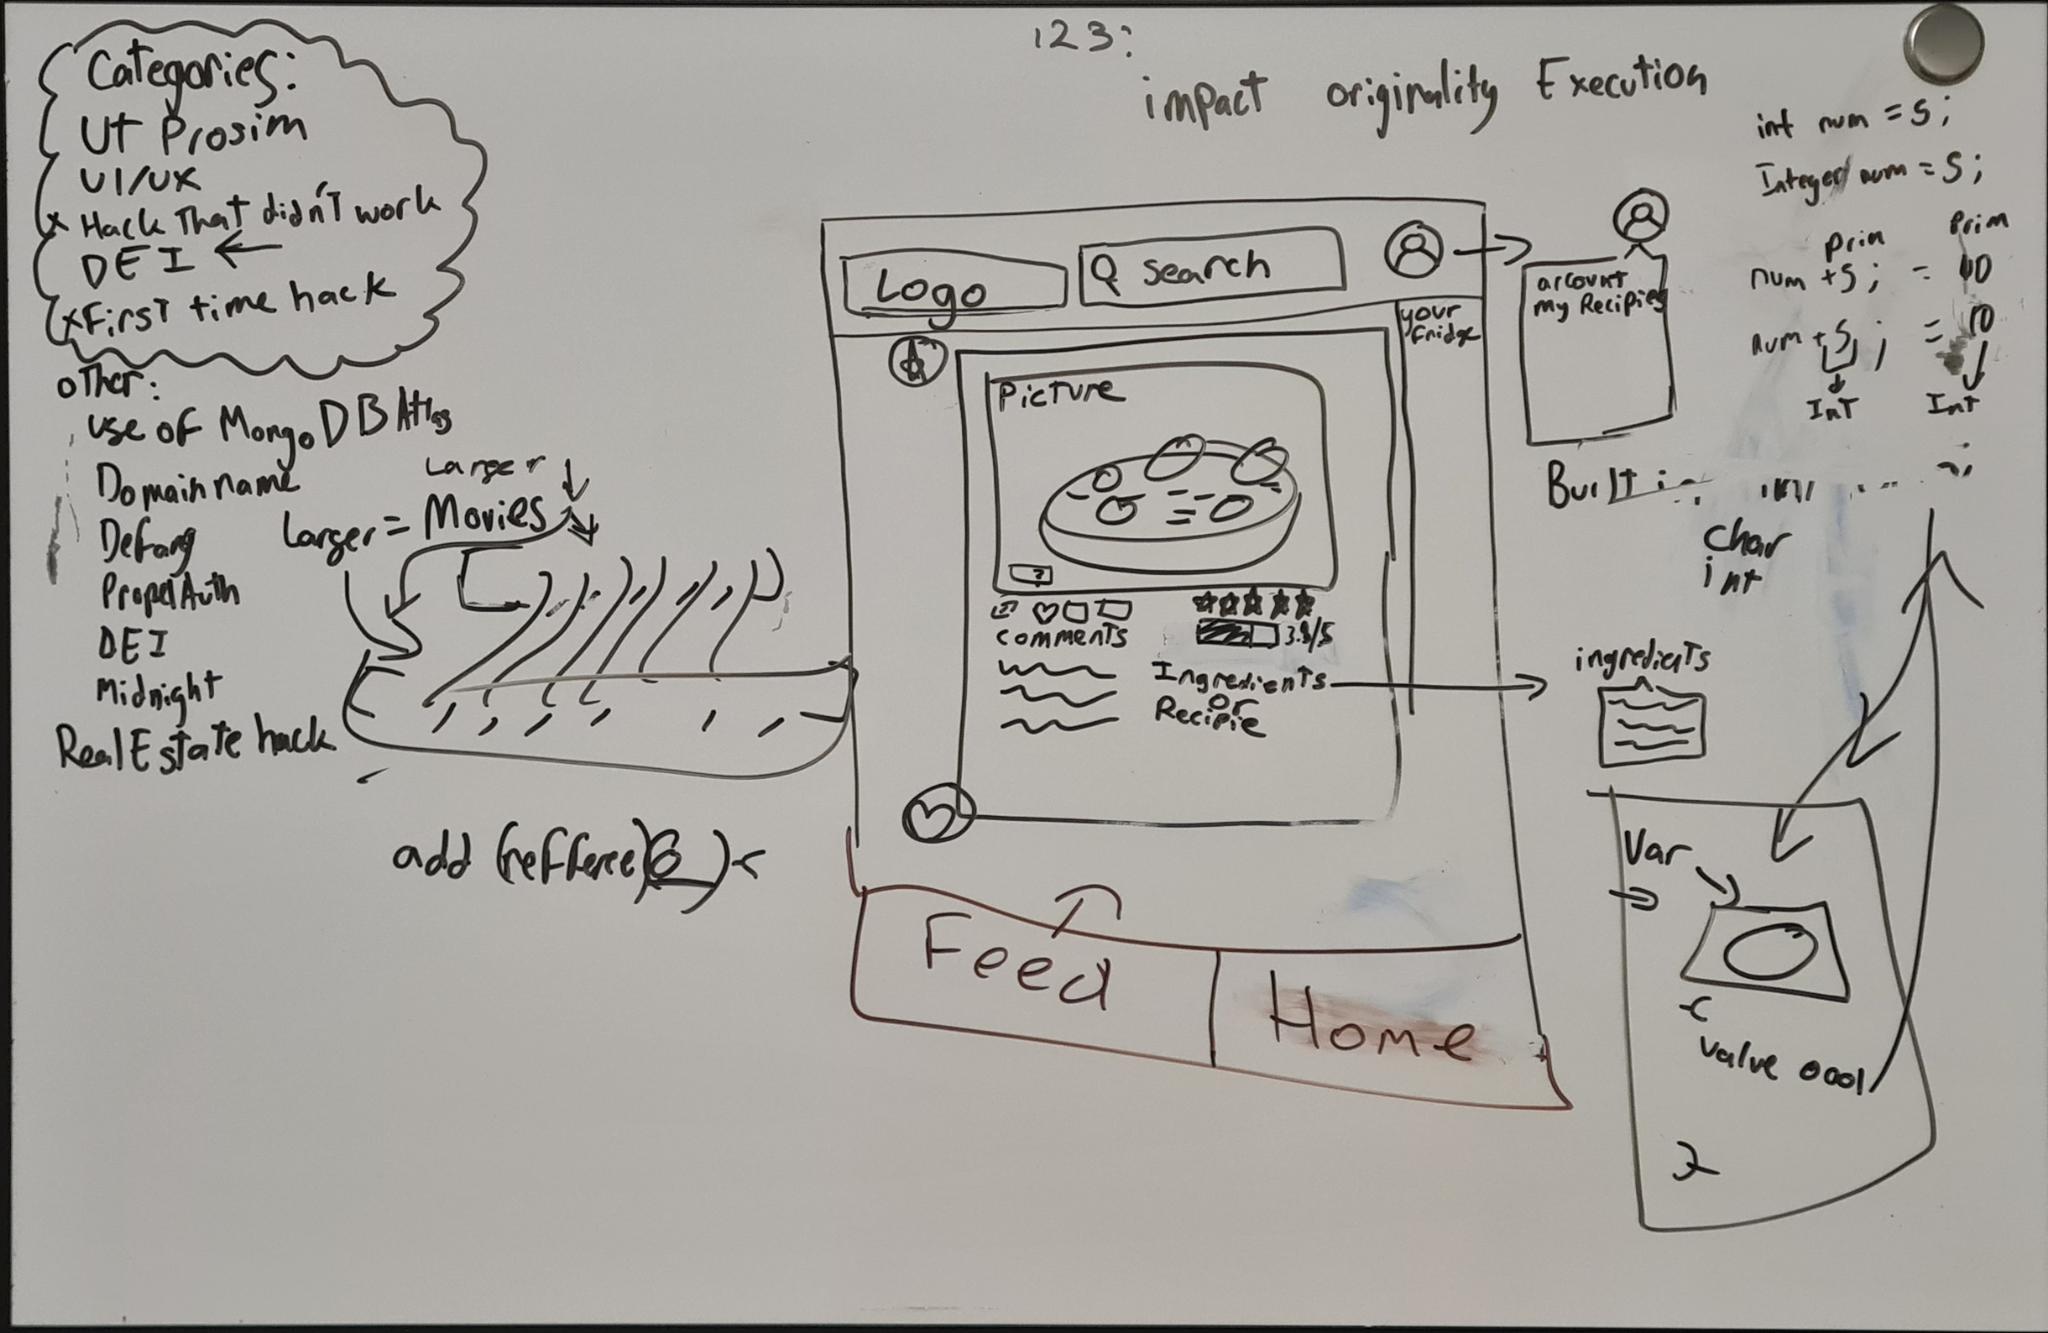 Categories:
Ut Prosim
UI/UX
x Hack That didn't work
DEI ←
x First time hack
other:
use of MongoDB Atlas
Domain name
Defang
PropelAuth
DEI
Midnight
Real Estate hack
Larger
Larger = Movies
add (refference)
123:
impact originality Execution
Logo
search
your
fridge
Picture
?
comments
3.8/5
Ingredients
or
Recipie
Feed
Home
account
my Recipies
ingredients
int num = 5;
Integer num = 5;
prim Prim
num + 5; = 10
num + 5; = 10
InT Int
Built
char
int
Var
{
value 0001
}